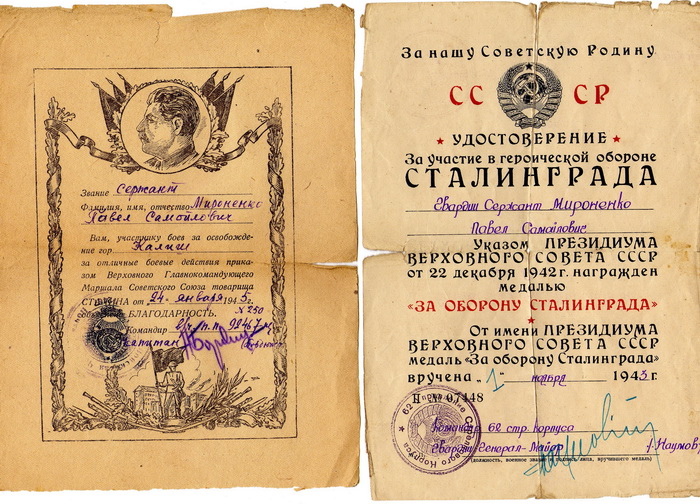 Звание Сержант
Фамилия, имя, отчество Мироненко
Павел Самойлович
Вам, участнику боев за освобожде-
ние гор. Калиш
за отличные боевые действия прика-
зом Верховного Главнокомандующего
Маршала Советского Союза товарища
СТАЛИНА от 24 января 1945 г.
БЛАГОДАРНОСТЬ. № 250
Командир
Капитан
За нашу Советскую Родину
СССР
УДОСТОВЕРЕНИЕ
За участие в героической обороне
СТАЛИНГРАДА
Гвардии Сержант Мироненко
Павел Самойлович
Указом ПРЕЗИДИУМА
ВЕРХОВНОГО СОВЕТА СССР
от 22 декабря 1942 г. награжден
медалью
«ЗА ОБОРОНУ СТАЛИНГРАДА»
От имени ПРЕЗИДИУМА
ВЕРХОВНОГО СОВЕТА СССР
медаль «За оборону Сталинграда»
вручена „1" ноября 1943 г.
№ 07448
Командир 62 стр. корпуса
Гвардии Генерал-Майор /Наумов/
(должность, военное звание и подпись лица, вручившего медаль)